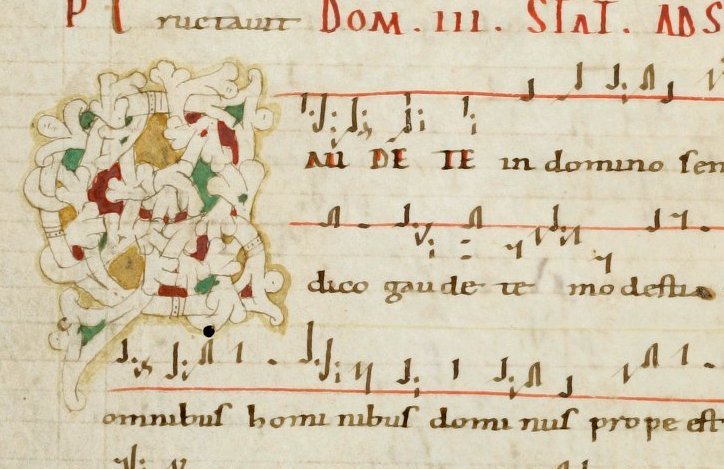 ructauit DOM . III . STAT . AD S
AU DE TE in domino sem
dico gau de te mo destia
omnibus homi nibus domi nus prope est